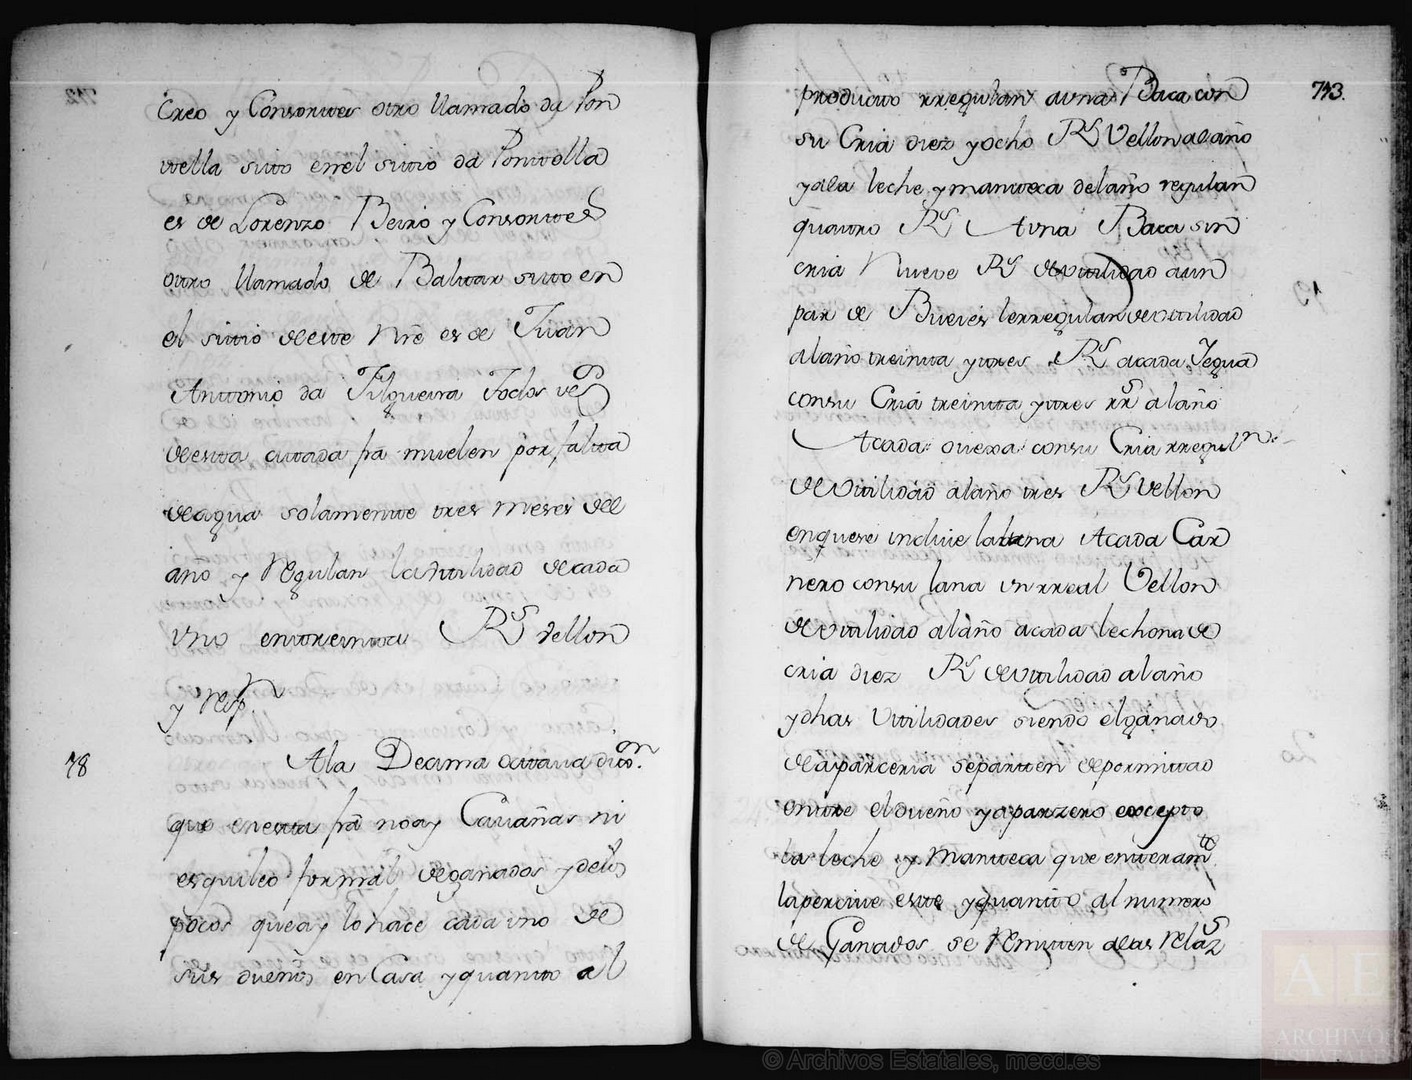 Creo y Consortes otro llamado da Pon
tella sito en el sitio da Pontella
es de Lorenzo Beiro y Consortes
otro llamado de Baltar sito en
el sitio de este Nre es de Juan
Antonio da Filgueira Todos
de esta citada fra muelen por falta
de agua solamente tres meses del
año y Regulan la utilidad de cada
uno en treinta Rs Vellon
y Resp.n
78
Ala Decima octava dixon.
que en esta fra no ay Cavañas ni
esquileo formal de ganados y delos
pocos que ay lo hace cada uno de
sus dueños en Casa y quanto al
743.
producto rregulan a una Baca con
su Cria diez y ocho Rs Vellon al año
y dela leche y manteca del año regulan
quatro Rs A una Baca sin
cria Nueve Rs de utilidad a un
par de Bueies le rregulan de utilidad
al año treinta y tres Rs a cada Yegua
con su Cria treinta y tres rrs al año
A cada ovexa con su Cria rregul.n
de Utilidad al año tres Rs Vellon
en que se incluie la lana A cada Car
nero con su lana un rreal Vellon
de utilidad al año a cada lechona de
cria diez Rs de Utilidad al año
y dhas Utilidades siendo el ganado
de aparceria se parten de por mitad
entre el dueño y aparzero excepto
la leche y Manteca que enteram.te
la percive este y quanto al numero
de Ganados se Remiten alas Relaz.s
© Archivos Estatales, mecd.es
AE
ARCHIVOS
ESTATALES